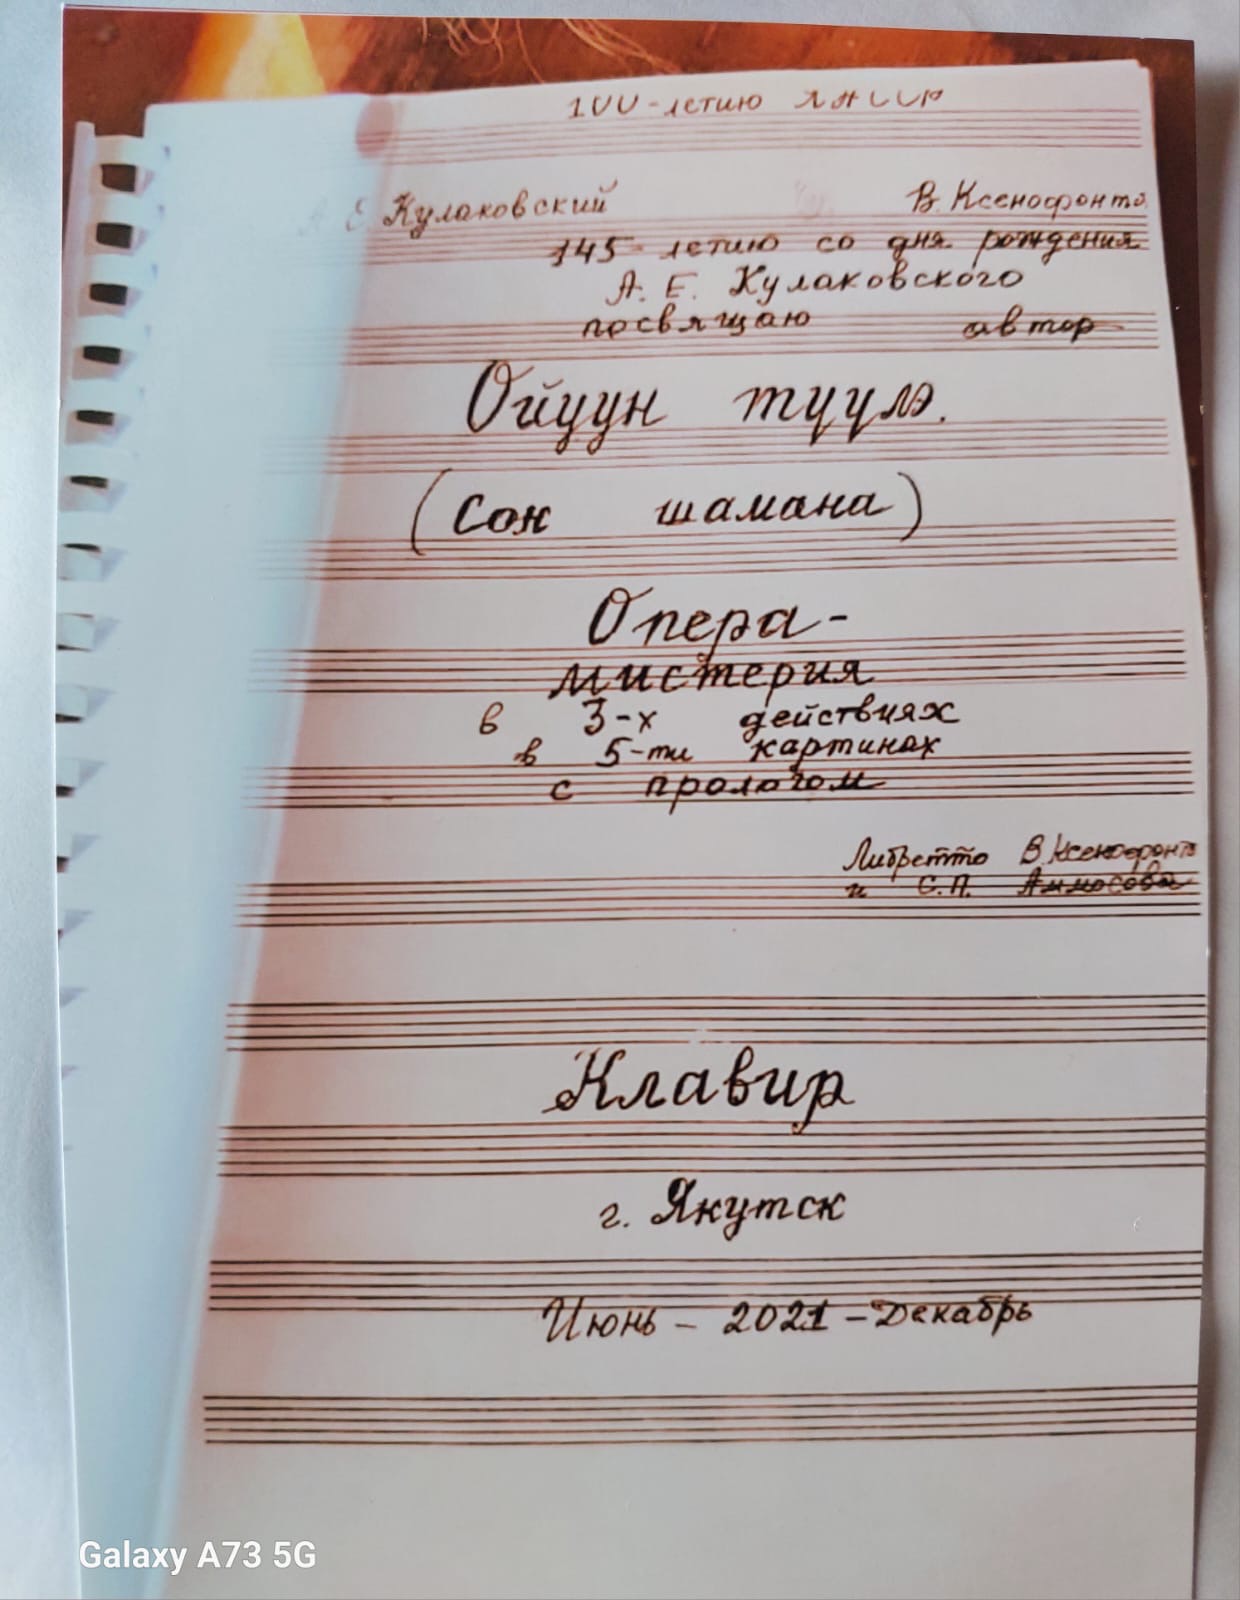 100-летию ЯАССР
А. Е. Кулаковский В. Ксенофонто
145-летию со дня рождения
А. Е. Кулаковского
посвящаю автор
Ойуун түүлэ.
(Сон шамана)
Опера-
мистерия
в 3-х действиях
в 5-ти картинах
с прологом
Либретто В. Ксенофонто
и С.П. Аммосова
Клавир
г. Якутск
Июнь - 2021 - Декабрь
Galaxy A73 5G